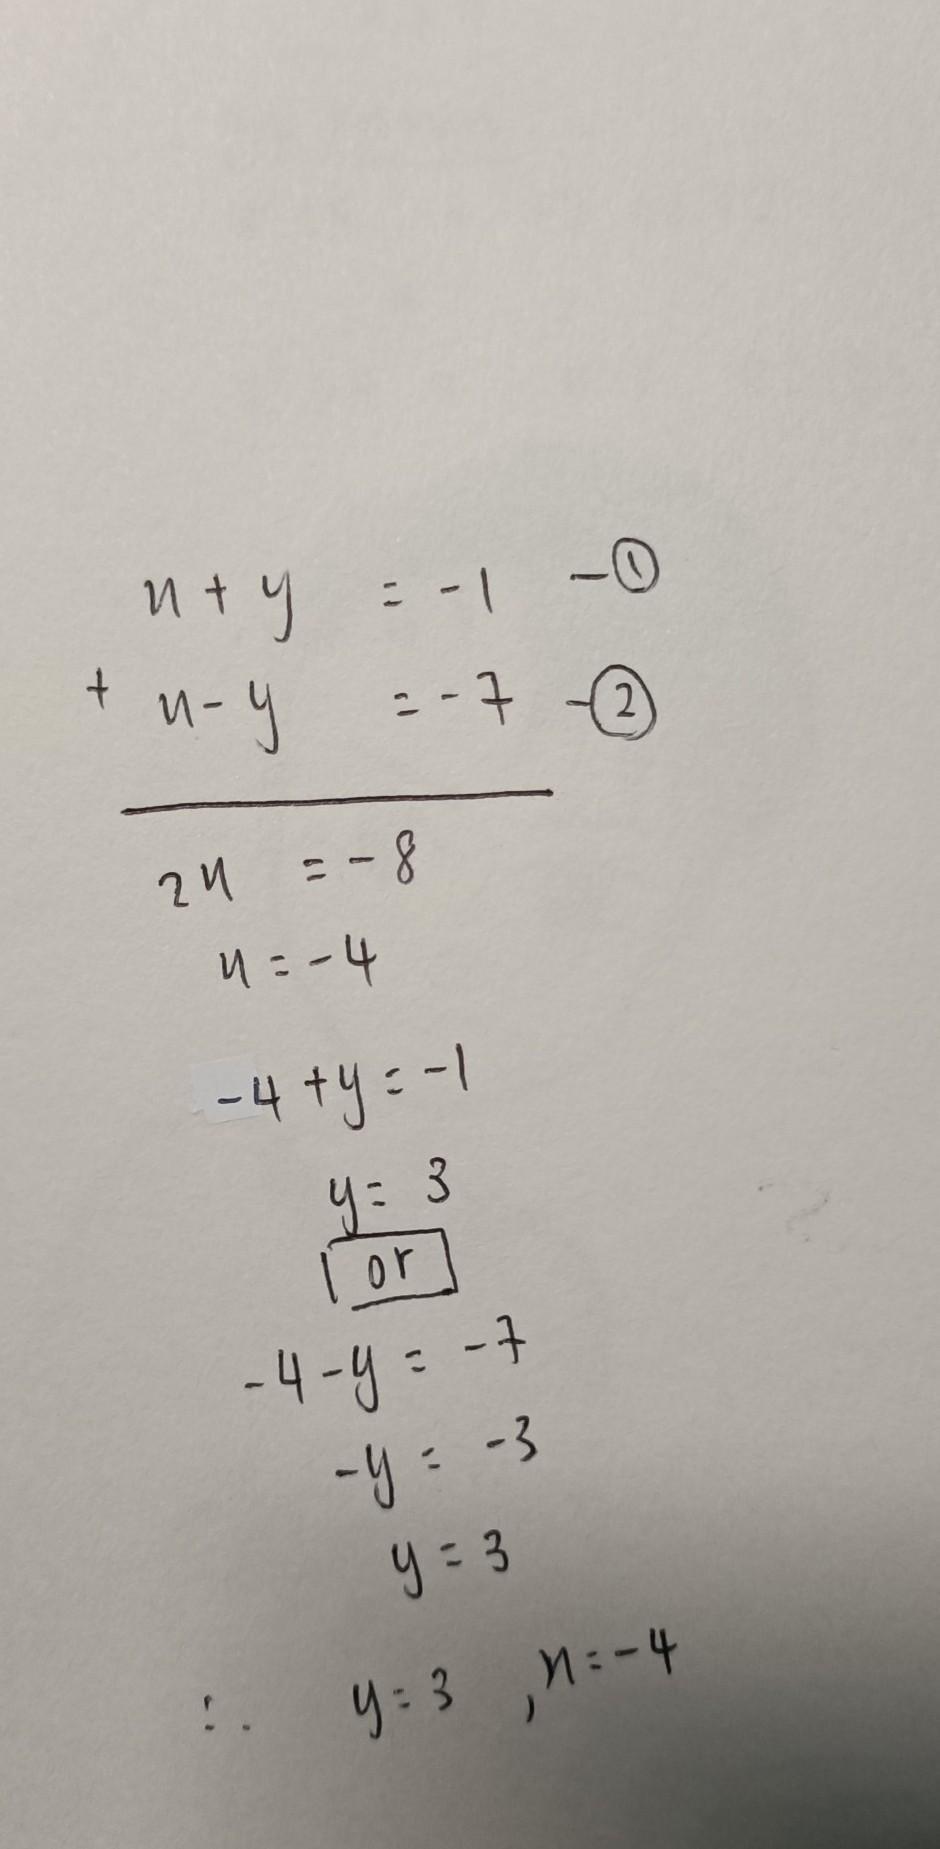 x + y = -1 - ①
+ x - y = -7 - ②
2x = -8
x = -4
-4 + y = -1
y = 3
or
-4 - y = -7
-y = -3
y = 3
∴ y = 3 , x = -4